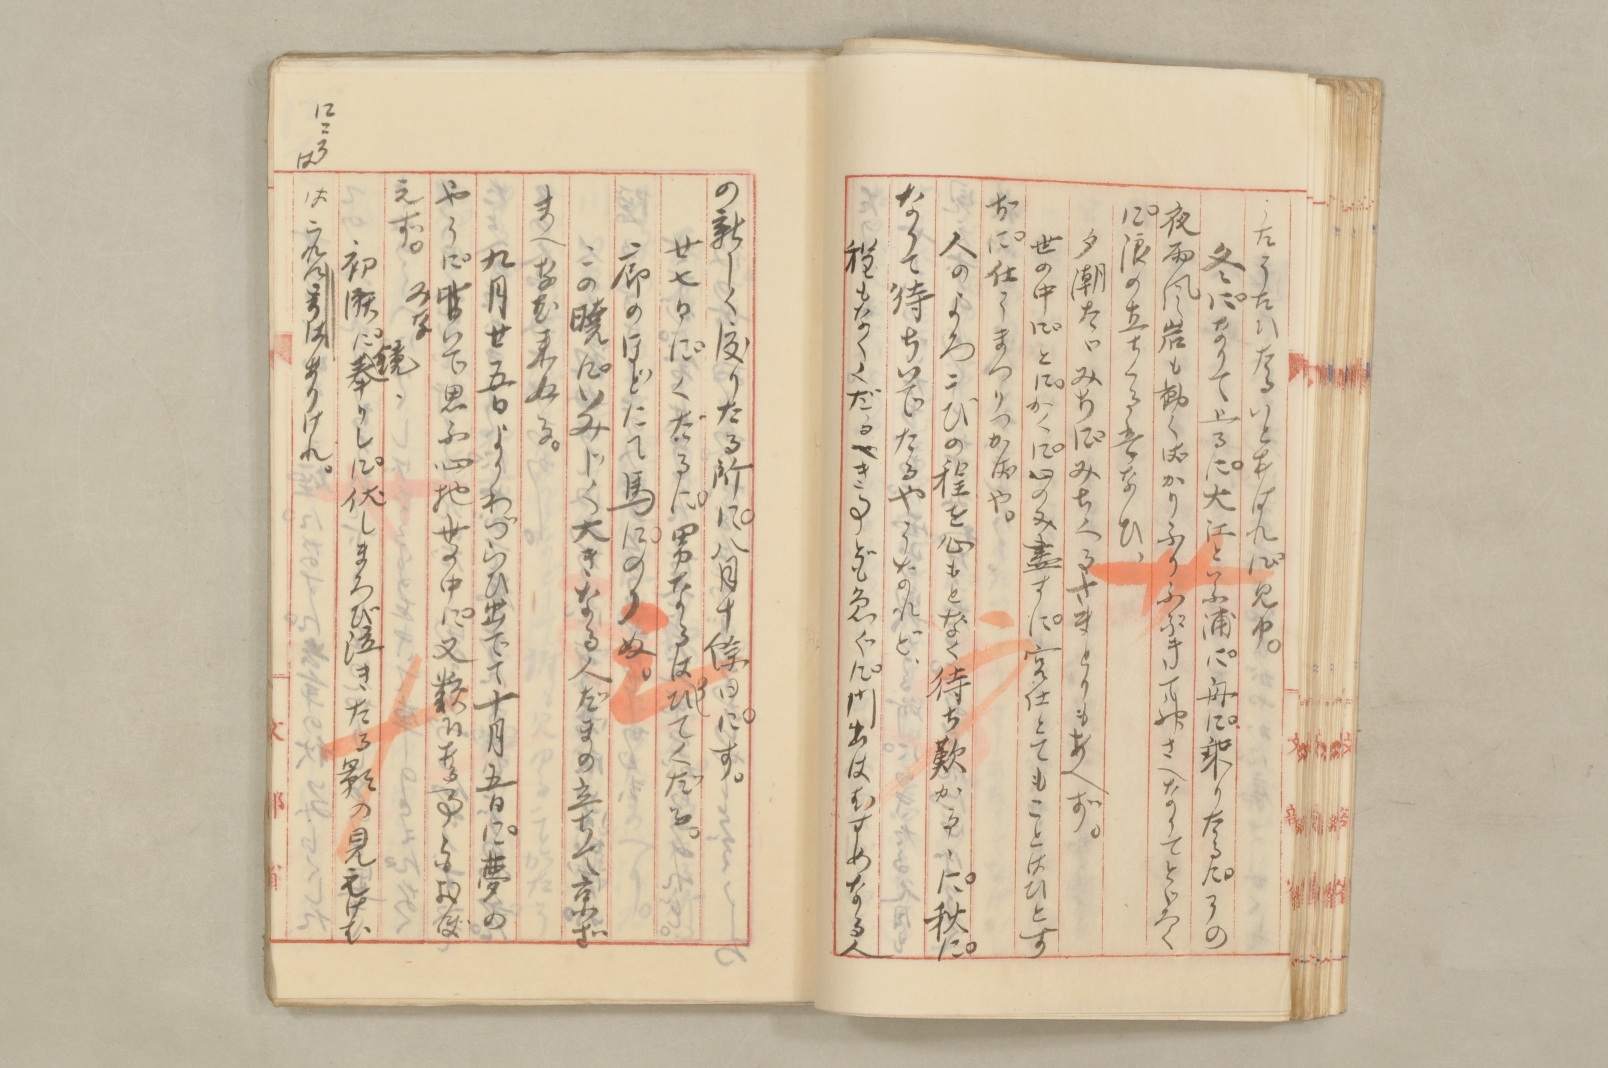 うたうたひたるいとあはれに見ゆ。
冬になりて上るに。大江といふ浦に。舟に乗りたるに。その
夜雨風岩も動くばかりふりふぶきて神さへなりてとどろく
に。浪の立ちくる音なひ、
夕潮たゞみちにみちくるさまとりもあへず。
世の中にとにかくに心のみ盡すに。宮仕とてもことはひとす
ぢに。仕うまつりつかばや。
人のよろこびの程を心もとなく待ち歎かるゝに。秋に。
なりて待ちいでたるやうなれど、
程もなくくだるべき事ども急ぐに。門出はむすめなる人
の新しく渡りたる所に。八月十餘日にす。
廿七日にくだるに。男なるはひてくだる。
廊のほどにて馬にのりぬ。
この曉にいみじく大きなる人だまの立ちて京ざ
まへなむ来ぬる。
九月廿五日よりわづらひ出でて十月五日に。夢の
やうに皆いで思ふ心地世の中に。又類ひある事とも覺
えず。
初瀬に。鏡奉りしに。伏しまろび泣きたる影の見えけむ
はこれにこそはありけれ。
にこそ
は
文
部
省